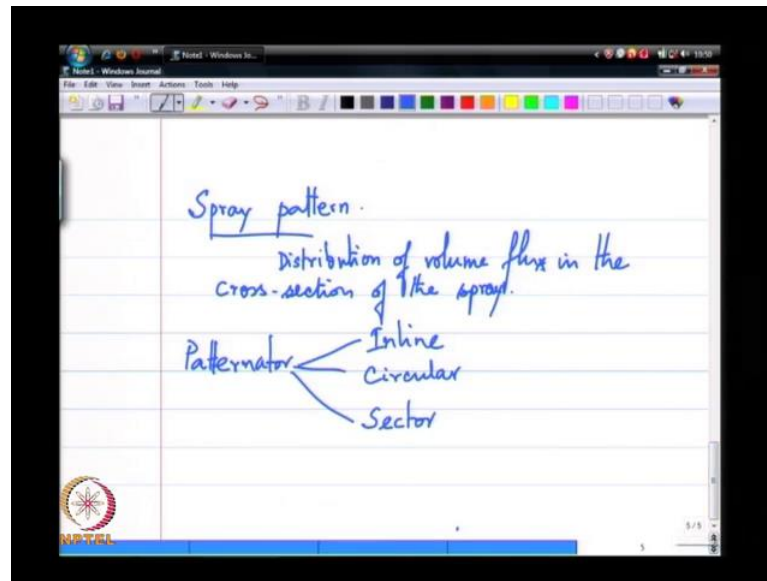 Note1 - Windows Jo...
10:50
Note1 - Windows Journal
File Edit View Insert Actions Tools Help
B I
Spray pattern.
Distribution of volume flux in the
cross-section of the spray.
Patternator
Inline
Circular
Sector
5/5
5
NPTEL